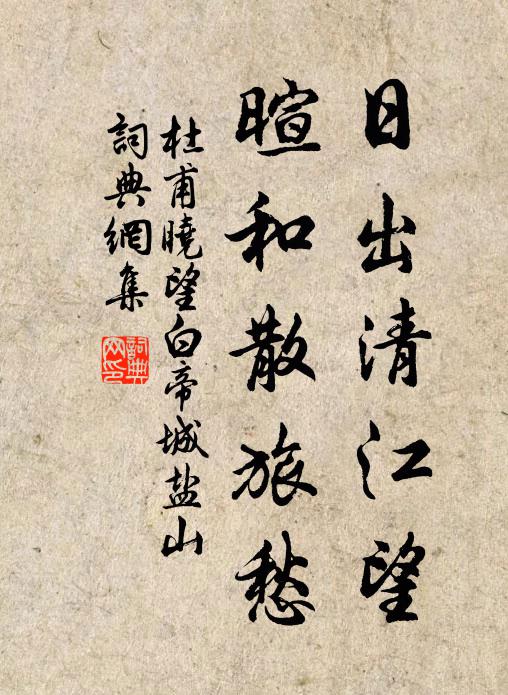 日出清江望
暄和散旅愁
杜甫曉望白帝城盐山
詞典網集
詞典
网印